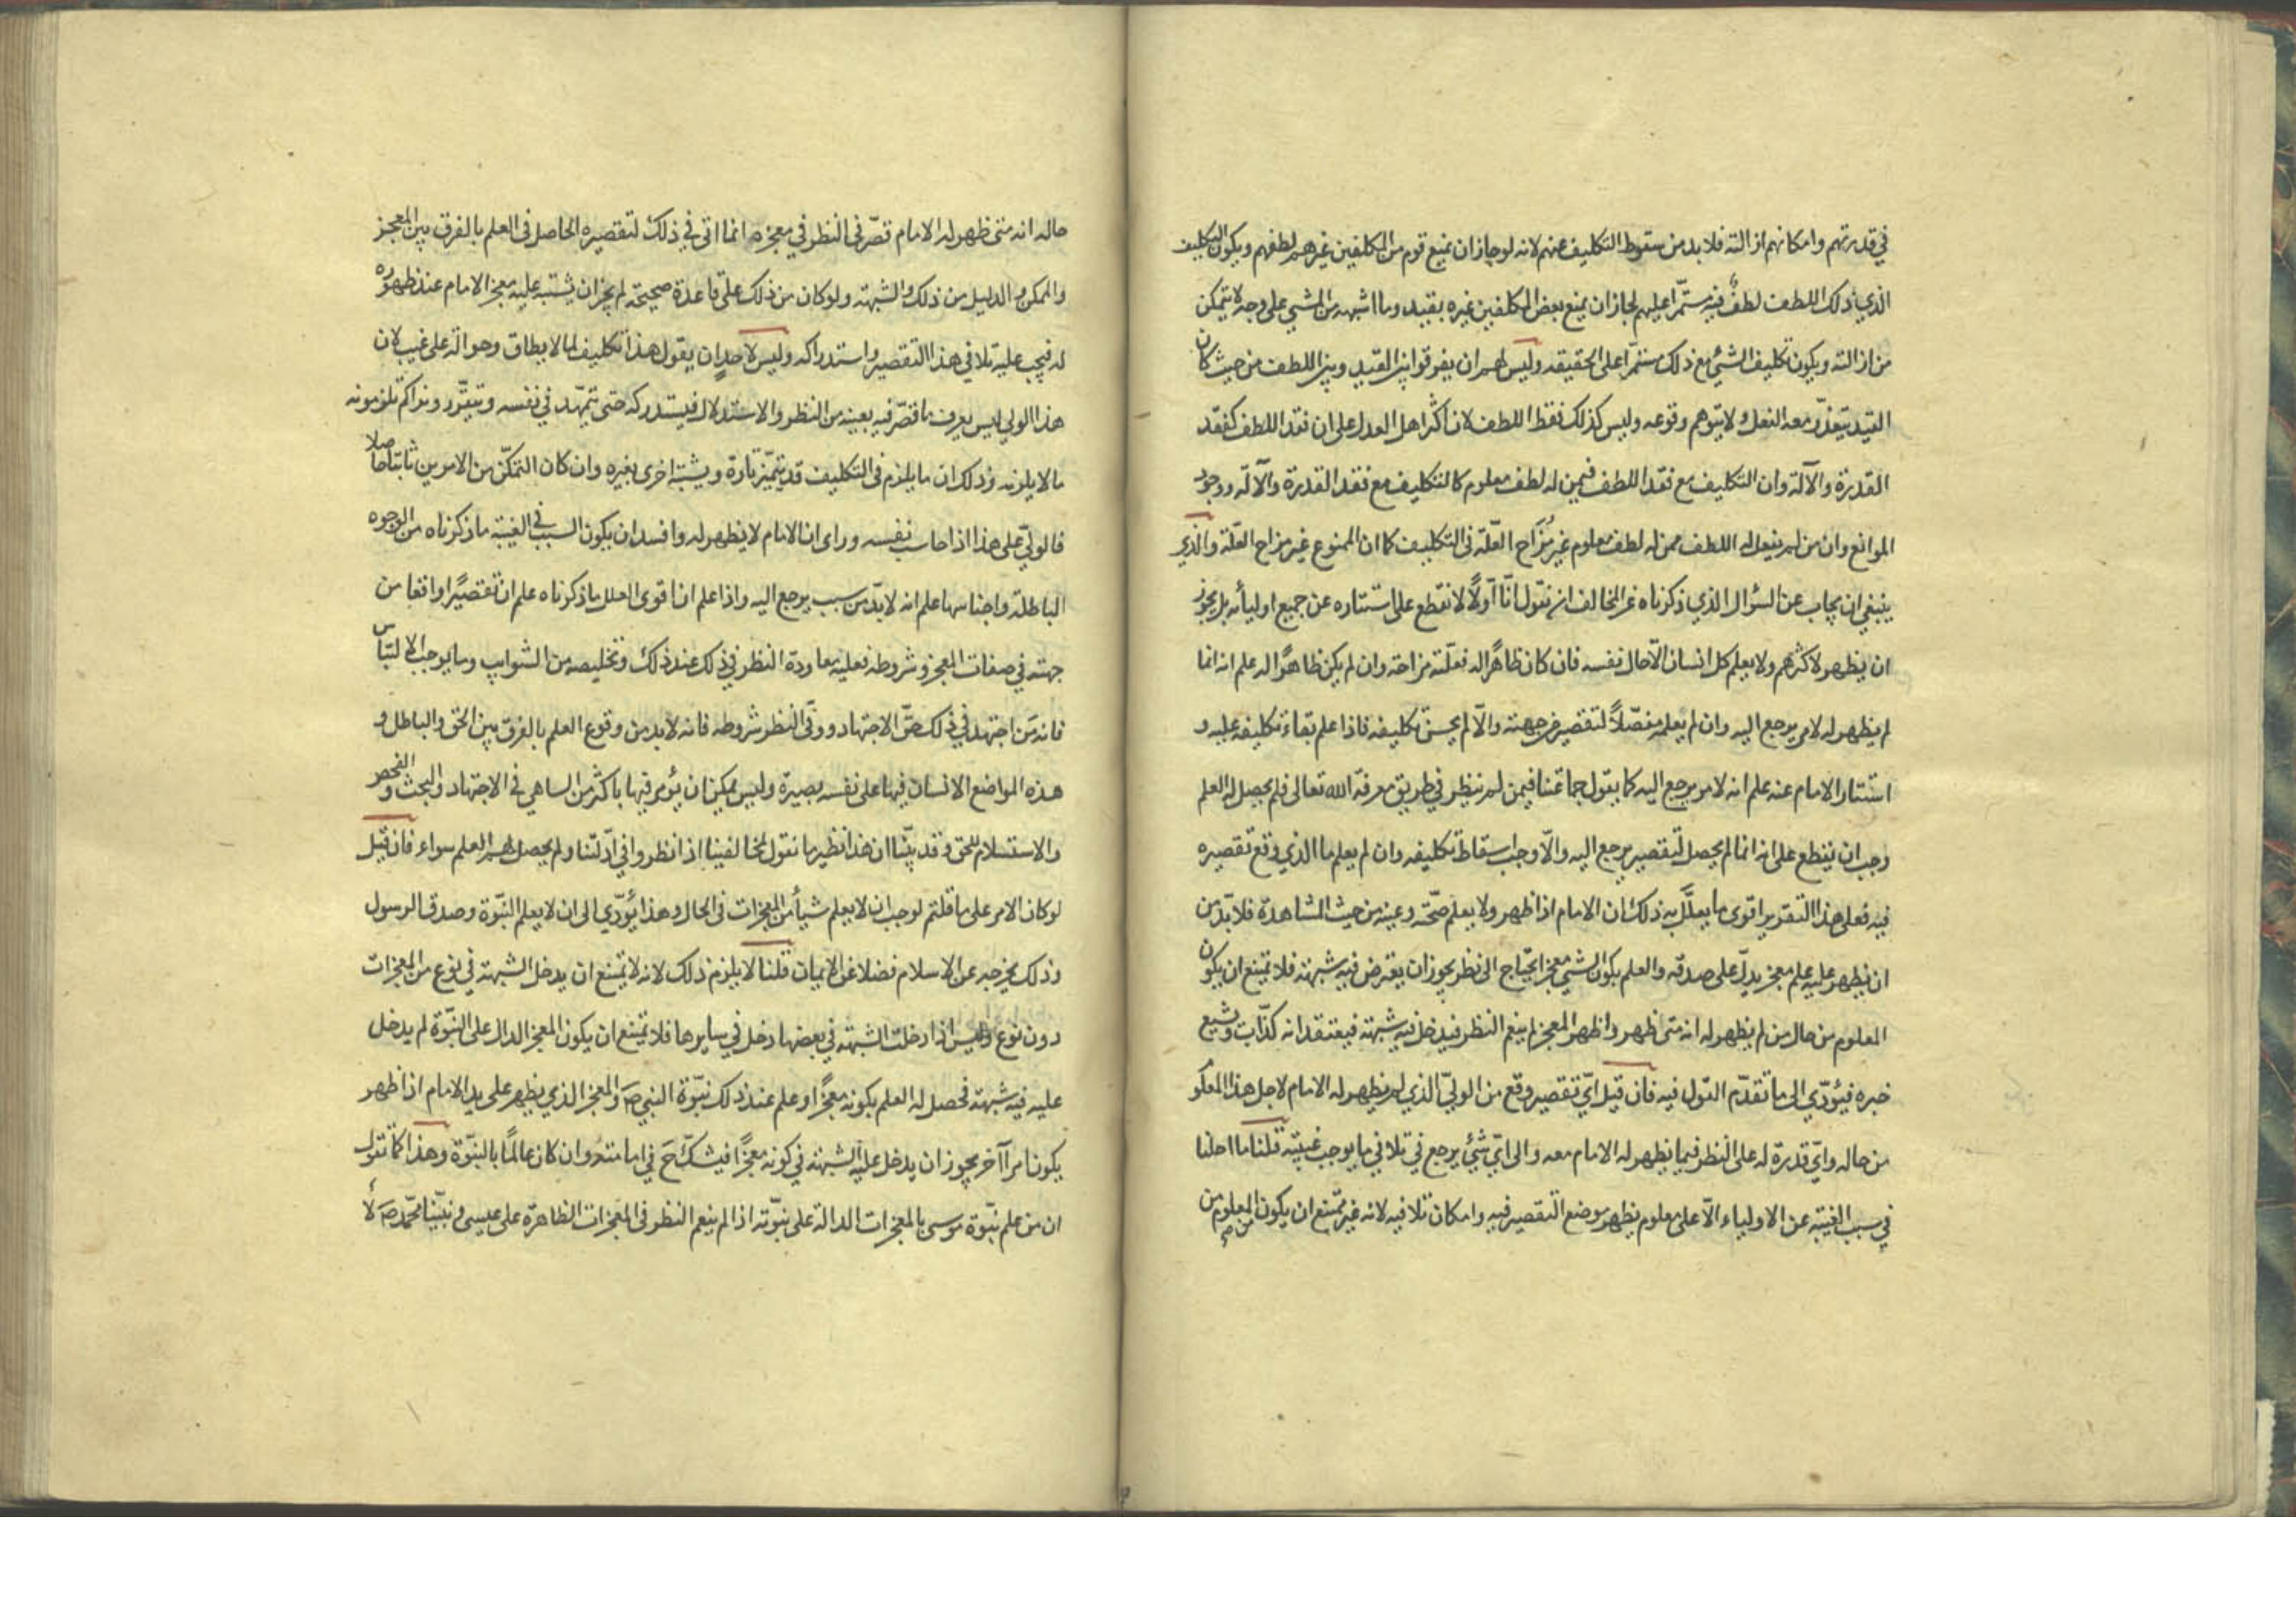 في قدرتهم وامكانهم ازالته فلا بد من سقوط التكليف عنهم لانه لو جاز ان يمنع قوم من المكلفين غيرهم لطفهم ويكون التكليف
الذي ذلك اللطف لطف فيه مستمرّا عليهم لجاز ان يمنع بعض المكلفين غيره بقيد وما اشبهه من المشي على وجه لا يتمكن
من ازالته ويكون تكليف المشي مع ذلك مستمرّا على الحقيقه وليس لهم ان يفرقوا بين القيد وبين اللطف من حيث كان
القيد يتعذّر معه الفعل ولا يتوهم وقوعه وليس كذلك فقط اللطف لان اكثر اهل العدل على ان فقد اللطف كفقد
القدرة والآلة وان التكليف مع فقد اللطف فيمن له لطف معلوم كالتكليف مع فقد القدرة والآلة ووجود
الموانع وان من لم يفعل له اللطف ممن له لطف معلوم غير مُزَاح العلّة في التكليف كما ان الممنوع غير مزاح العلّة والذي
ينبغي ان يجاب عن السؤال الذي ذكرناه عن المخالف ان نقول انّا اولًا لا نقطع على استتاره عن جميع اوليائه بل يجوز
ان يظهر لاكثرهم ولا يعلم كل انسان الّا حال نفسه فان كان ظاهرًا له فعلّته مزاحة وان لم يكن ظاهرًا له علم انه انما
لم يظهر له لامر يرجع اليه وان لم يعلمه مفصّلًا لتقصير من جهته والّا لم يحسن تكليفه فاذا علم بقاء تكليفه عليه و
استتار الامام عنه علم انه لامر يرجع اليه كما يقول جماعتنا فيمن لم ينظر في طريق معرفة الله تعالى فلم يحصل له العلم
وجب ان يقطع على انه انما لم يحصل لتقصير يرجع اليه والّا وجب اسقاط تكليفه وان لم يعلم ما الذي وقع تقصيره
فيه فعلى هذا التقرير اقوى ما يعلّل به ذلك ان الامام اذا ظهر ولا يعلم صحّته وعينه من حيث المشاهدة فلا بدّ من
ان يظهر عليه علم معجز يدلّ على صدقه والعلم بكون الشيء معجزا يحتاج الى نظر يجوز ان يعترض فيه شبهة فلا يمتنع ان يكون
المعلوم من حال من لم يظهر له انه متى ظهر واظهر المعجز لم ينعم النظر فيدخل فيه شبهة فيعتقد انه كذّاب ويشيع
خبره فيؤدّي الى ما تقدّم القول فيه فان قيل ايّ تقصير وقع من الوليّ الذي لم يظهر له الامام لاجل هذا المعلوم
من حاله وايّ قدرة له على النظر فيما يظهر له الامام معه والى ايّ شئ يرجع في تلافي ما يوجب غيبته قلنا ما احلنا
في سبب الغيبة عن الاولياء الّا على معلوم يظهر موضع التقصير فيه وامكان تلافيه لانه غير ممتنع ان يكون المعلوم من
حاله انه متى ظهر له الامام قصّر في النظر في معجزه انما اتى في ذلك لتقصيره الحاصل في العلم بالفرق بين المعجز
والممكن والدليل من ذلك والشبهة ولو كان من ذلك على قاعدة صحيحة لم يجز ان يشتبه عليه معجز الامام عند ظهوره
له فيجب عليه تلافي هذا التقصير واستدراكه وليس لاحد ان يقول هذا تكليف لما لا يطاق وحوالة على غيب لان
هذا الولي ليس يعرف ما قصّر فيه بعينه من النظر والاستدلال فيستدركه حتى يتمهّد في نفسه ويتقرّر ونراكم تلزمونه
ما لا يلزمه وذلك ان ما يلزم في التكليف قد يتميّز تارة ويشتبه اخرى بغيره وان كان التمكّن من الامرين ثابتا حاصلا
فالوليّ على هذا اذا حاسب نفسه وراى ان الامام لا يظهر له وافسد ان يكون السبب في الغيبة ما ذكرناه من الوجوه
الباطلة واجناسها علم انه لا بدّ من سبب يرجع اليه واذا علم ان اقوى العلل ما ذكرناه علم ان تقصيرًا واقعا من
جهته في صفات المعجز وشروطه فعليه معاودة النظر في ذلك عند ذلك وتخليصه من الشوايب وما يوجب الالتباس
فانه من اجتهد في ذلك حقّ الاجتهاد ووفّى النظر شروطه فانه لا بد من وقوع العلم بالفرق بين الحق والباطل و
هذه المواضع الانسان فيها على نفسه بصيرة وليس يمكن ان يؤمر فيها باكثر من التناهي في الاجتهاد والبحث والفحص
والاستسلام للحق وقد بيّنّا ان هذا نظير ما نقول لمخالفينا اذا نظروا في ادلّتنا ولم يحصل لهم العلم سواء فان قيل
لو كان الامر على ما قلتم لوجب ان لا يعلم شيأ من المعجزات في الحال وهذا يؤدّي الى ان لا يعلم النبّوة وصدق الرسول
وذلك يخرجه عن الاسلام فضلا عن الايمان قلنا لا يلزم ذلك لانه لا يمتنع ان يدخل الشبهة في نوع من المعجزات
دون نوع وليس اذا دخلت الشبهة في بعضها دخل في سايرها فلا يمتنع ان يكون المعجز الدال على النبّوة لم يدخل
عليه فيه شبهة فحصل له العلم بكونه معجزًا وعلم عند ذلك نبّوة النبي ص والمعجز الذي يظهر على يد الامام اذا ظهر
يكون امرا آخر يجوز ان يدخل عليه الشبهة في كونه معجزًا فيشكّ ح في امامته وان كان عالمًا بالنبّوة وهذا كما نقول
ان من علم نبّوة موسى بالمعجزات الدالة على نبّوته اذا لم ينعم النظر في المعجزات الظاهرة على عيسى ونبيّنا محمّد ص لا